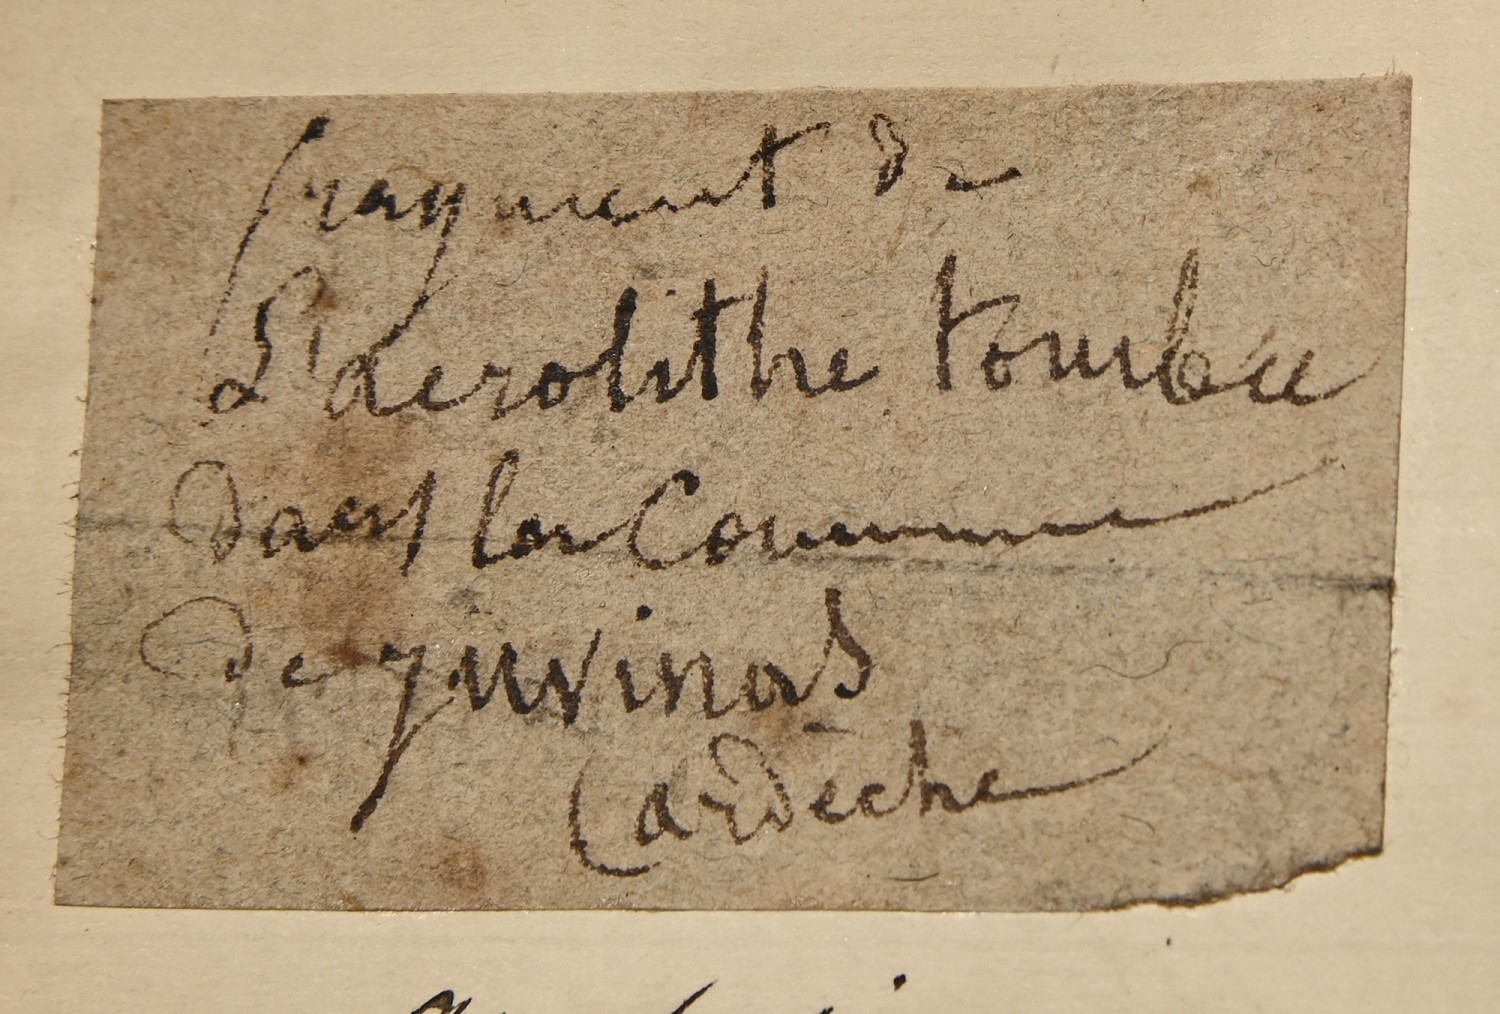 fragment de
L'aerolithe tombée
dans la Commune
de juvinas
Cardèche